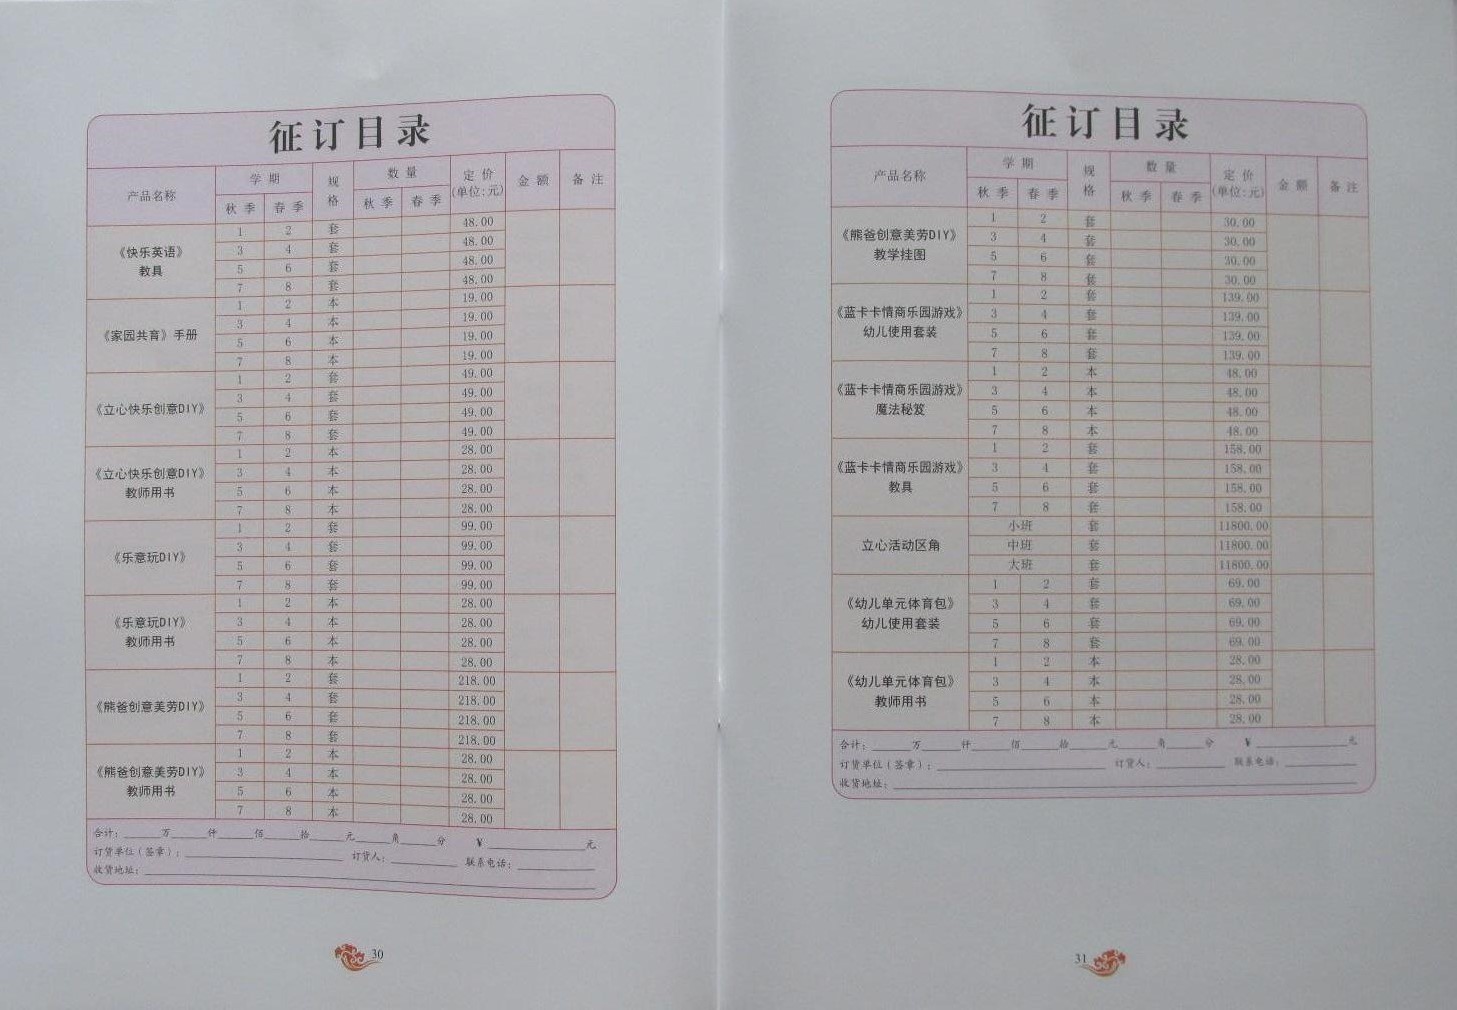 征订目录
产品名称 学期 规格 数量 定价(单位:元) 金额 备注
秋季 春季 秋季 春季
《快乐英语》教具
1 2 套 48.00
3 4 套 48.00
5 6 套 48.00
7 8 套 48.00
《家园共育》手册
1 2 本 19.00
3 4 本 19.00
5 6 本 19.00
7 8 本 19.00
《立心快乐创意DIY》
1 2 套 49.00
3 4 套 49.00
5 6 套 49.00
7 8 套 49.00
《立心快乐创意DIY》教师用书
1 2 本 28.00
3 4 本 28.00
5 6 本 28.00
7 8 本 28.00
《乐意玩DIY》
1 2 套 99.00
3 4 套 99.00
5 6 套 99.00
7 8 套 99.00
《乐意玩DIY》教师用书
1 2 本 28.00
3 4 本 28.00
5 6 本 28.00
7 8 本 28.00
《熊爸创意美劳DIY》
1 2 套 218.00
3 4 套 218.00
5 6 套 218.00
7 8 套 218.00
《熊爸创意美劳DIY》教师用书
1 2 本 28.00
3 4 本 28.00
5 6 本 28.00
7 8 本 28.00
合计:____万____仟____佰____拾____元____角____分 ¥________元
订货单位(签章):________ 订货人:______ 联系电话:______
收货地址:________
30
征订目录
产品名称 学期 规格 数量 定价(单位:元) 金额 备注
秋季 春季 秋季 春季
《熊爸创意美劳DIY》教学挂图
1 2 套 30.00
3 4 套 30.00
5 6 套 30.00
7 8 套 30.00
《蓝卡卡情商乐园游戏》幼儿使用套装
1 2 套 139.00
3 4 套 139.00
5 6 套 139.00
7 8 套 139.00
《蓝卡卡情商乐园游戏》魔法秘笈
1 2 本 48.00
3 4 本 48.00
5 6 本 48.00
7 8 本 48.00
《蓝卡卡情商乐园游戏》教具
1 2 套 158.00
3 4 套 158.00
5 6 套 158.00
7 8 套 158.00
立心活动区角
小班 套 11800.00
中班 套 11800.00
大班 套 11800.00
《幼儿单元体育包》幼儿使用套装
1 2 套 69.00
3 4 套 69.00
5 6 套 69.00
7 8 套 69.00
《幼儿单元体育包》教师用书
1 2 本 28.00
3 4 本 28.00
5 6 本 28.00
7 8 本 28.00
合计:____万____仟____佰____拾____元____角____分 ¥________元
订货单位(签章):________ 订货人:______ 联系电话:______
收货地址:________
31